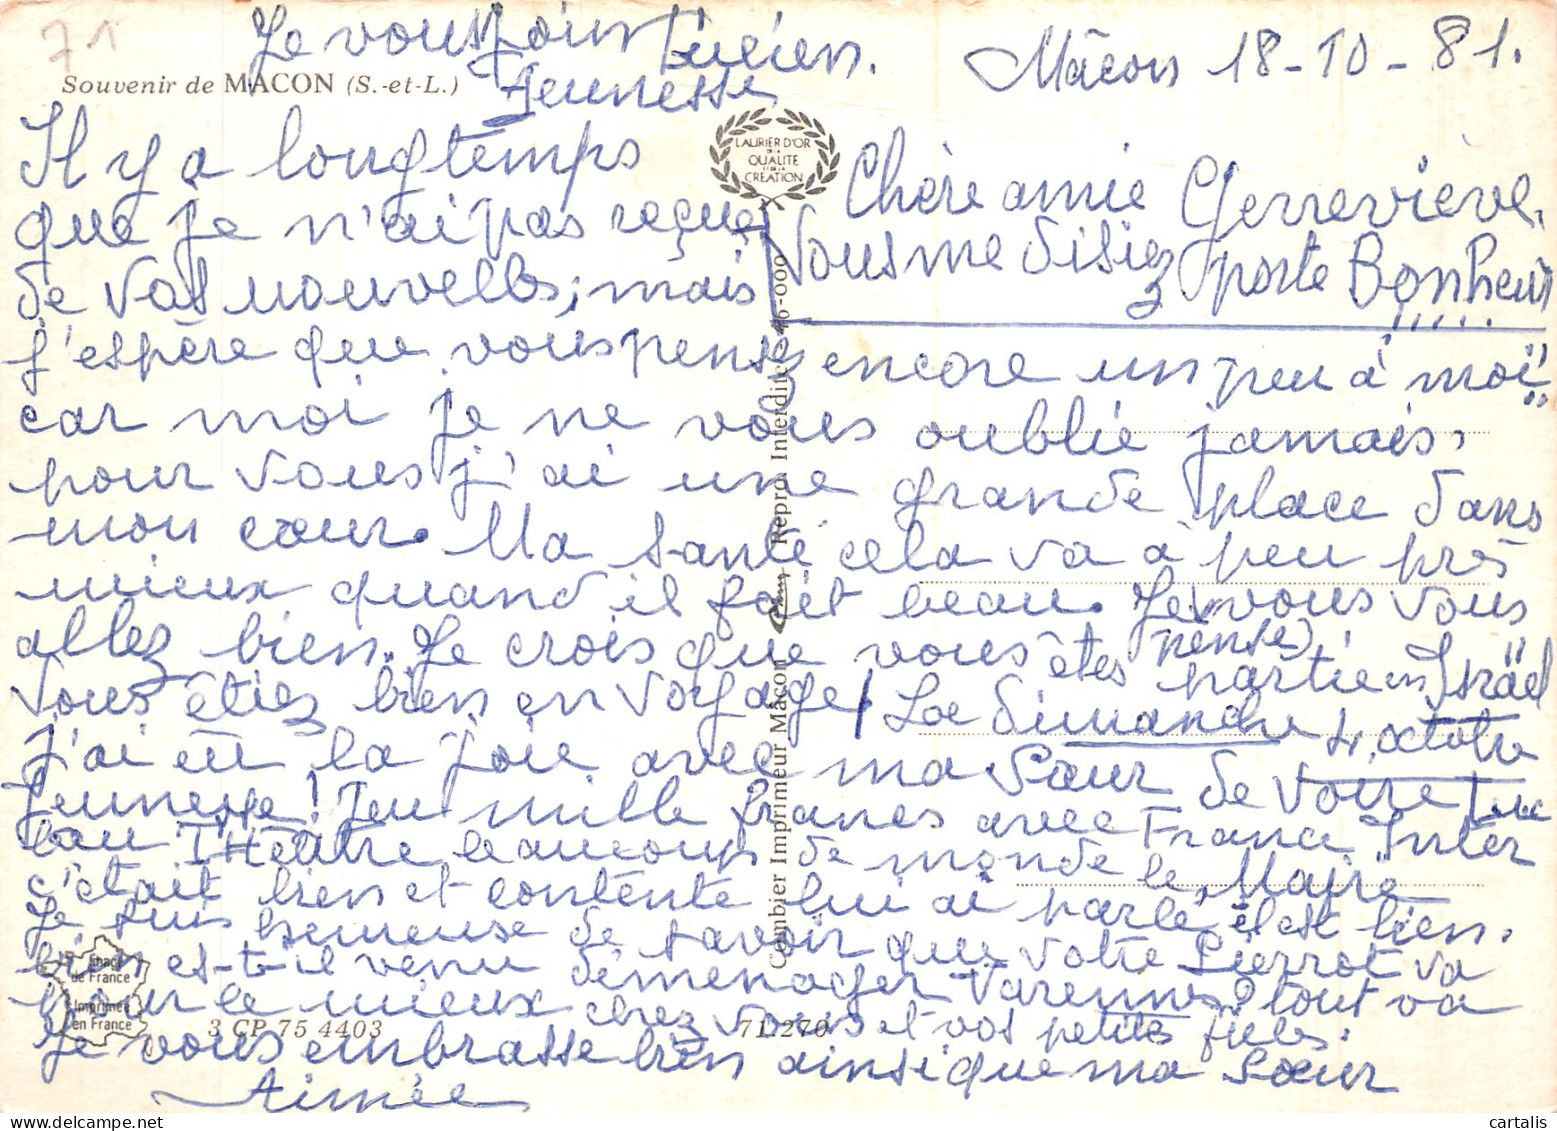 71
Je vous joins Lucien.
Jeunesse
Mâcon 18-10-81.
Souvenir de MACON (S.-et-L.)
LAURIER D'OR
DE LA
QUALITE
ET DE LA
CREATION
Chère amie Genneviève.
Vous me disiez porte Bonheur
Il y a longtemps
que je n'ai pas reçue
de Vos nouvelles, mais
j'espère que vous pensez encore un peu à moi
car moi je ne vous oublie jamais,
pour vous j'ai une grande place dans
mon cœur. Ma santé cela va à peu près
mieux quand il fait beau. Je vous vous
pense
allez bien. Je crois que vous êtes partie en Israël
Vous étiez bien en voyage! Le dimanche 4, octobre
J'ai eu la joie avec ma Sœur de Voire
Jeunesse! Jeu mille francs avec France Inter
au THéâtre, beaucoup de monde le Maire
c'était bien et contente lui ai parlé, il est bien.
Je suis heureuse de savoir que votre Pierrot va
bien es-t-il venu déménager Varennes? tout va
pour le mieux chez vous et vos petites filles.
Je vous embrasse bien ainsi que ma Sœur
Aimée
Image
de France
Imprimée
en France
3 CP 75 4403
71.270
Combier Imprimeur Mâcon
Repro. Interdite
46-000
cartalis